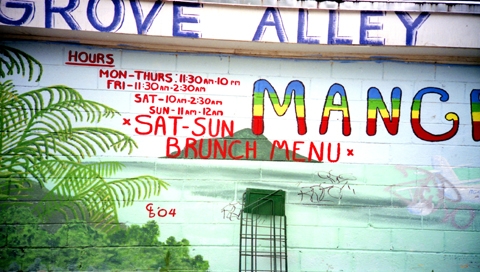 GROVE ALLEY
HOURS
MON-THURS: 11:30AM-10PM
FRI-11:30AM-2:30AM
SAT-10AM-2:30AM
SUN-11AM-12AM
MANG
*SAT-SUN
BRUNCH MENU*
04